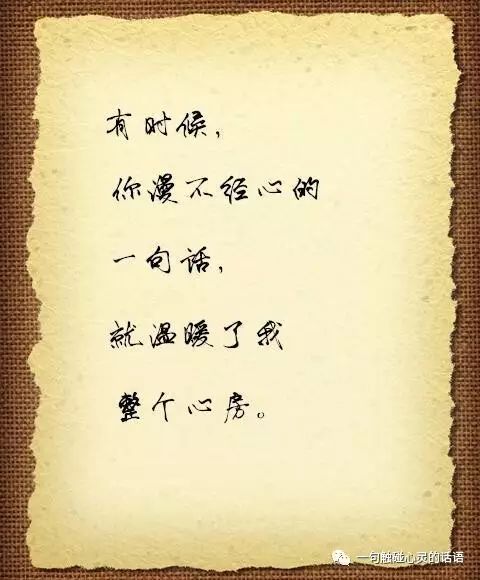 有时候，
你漫不经心的
一句话，
就温暖了我
整个心房。
一句触碰心灵的话语